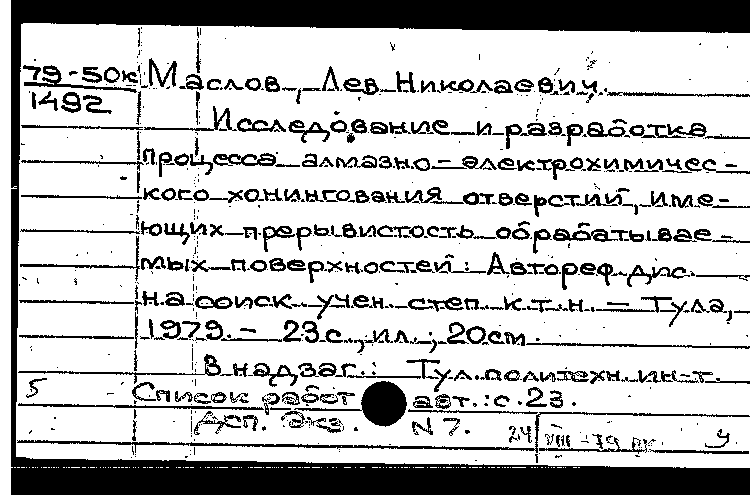 79-50к Маслов, Лев Николаевич.
1492
Исследование и разработка
процесса алмазно-электрохимичес-
кого хонингования отверстий, име-
ющих прерывистость обрабатывае-
мых поверхностей: Автореф. дис.
на соиск. учен. степ. к.т.н. – Тула,
1979. – 23с., ил.; 20см.
В надзаг.: Тул. политехн. ин-т.
5 Список работ авт.: с. 23.
ДСП. Экз. N 7.
24 VIII-79